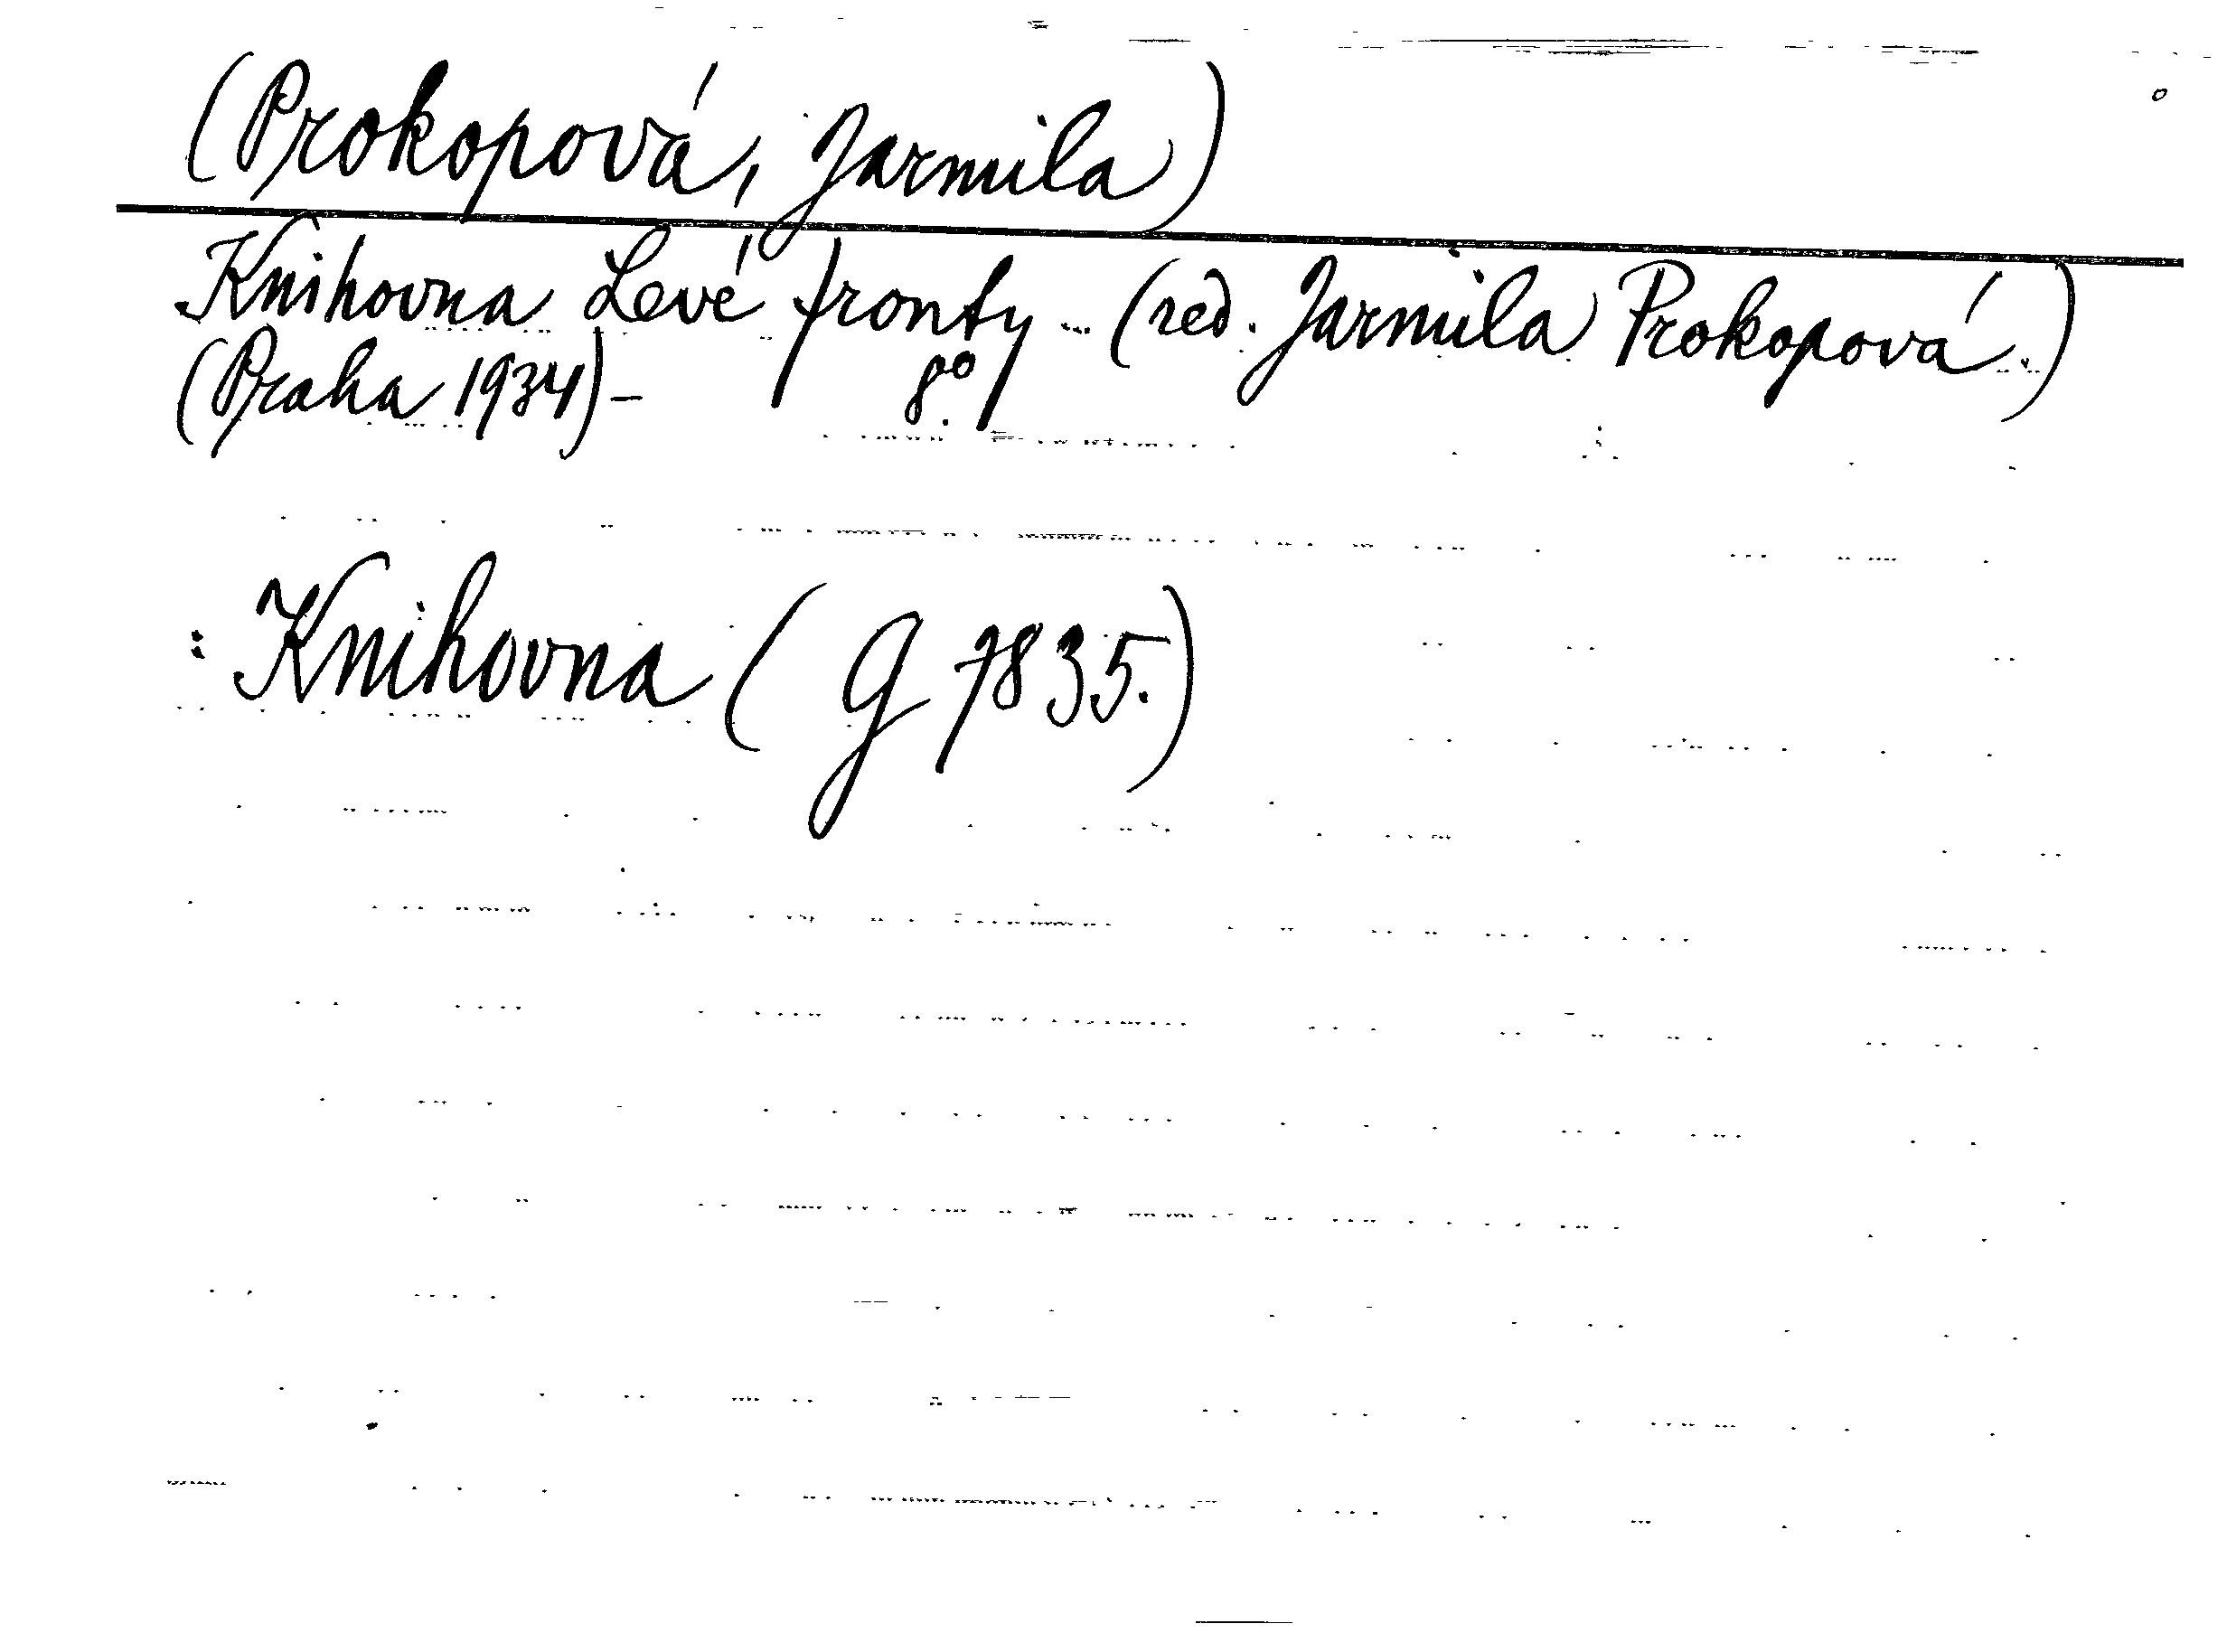 (Prokopová, Jarmila)
Knihovna Levé fronty (red. Jarmila Prokopová.)
(Praha 1934) - 8°.
: Knihovna (G 7835.)